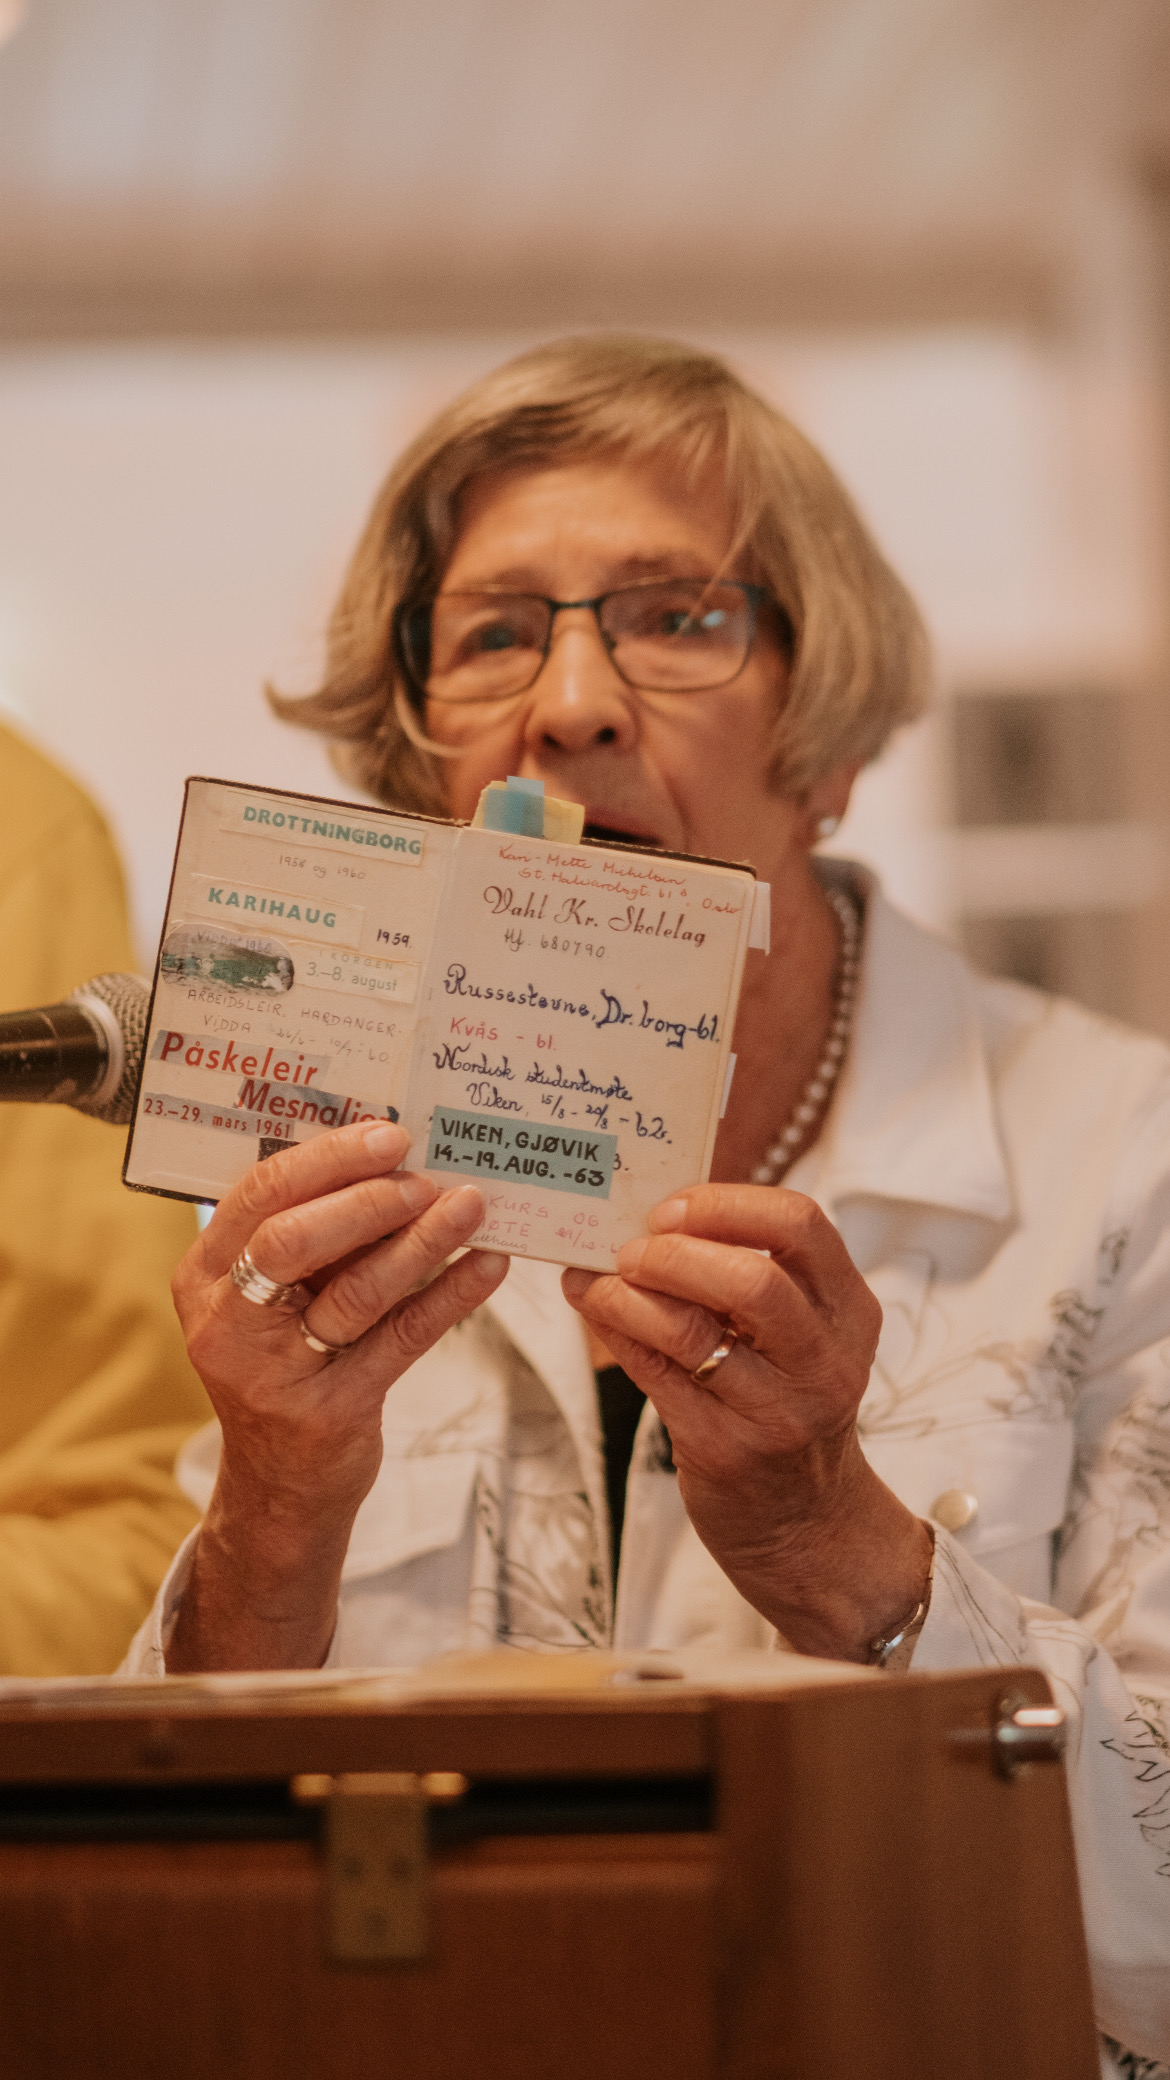 DROTTNINGBORG
1958 og 1960
KARIHAUG
1959.
VIDDA 1960
I KORGEN
3.–8. august
ARBEIDSLEIR, HARDANGER-
VIDDA 26/6- 10/7-60
Påskeleir
Mesnalien
23.–29. mars 1961
Kari-Mette
St. Halvardsgt. 61 B, Oslo
Vahl Kr. Skolelag
tlf. 680790
Russestevne, Dr.borg-61.
KVÅS - 61.
Nordisk studentmøte
Viken, 15/8 - 20/8 - 62.
VIKEN, GJØVIK
14.-19. AUG. -63
3.
KURS OG
MØTE